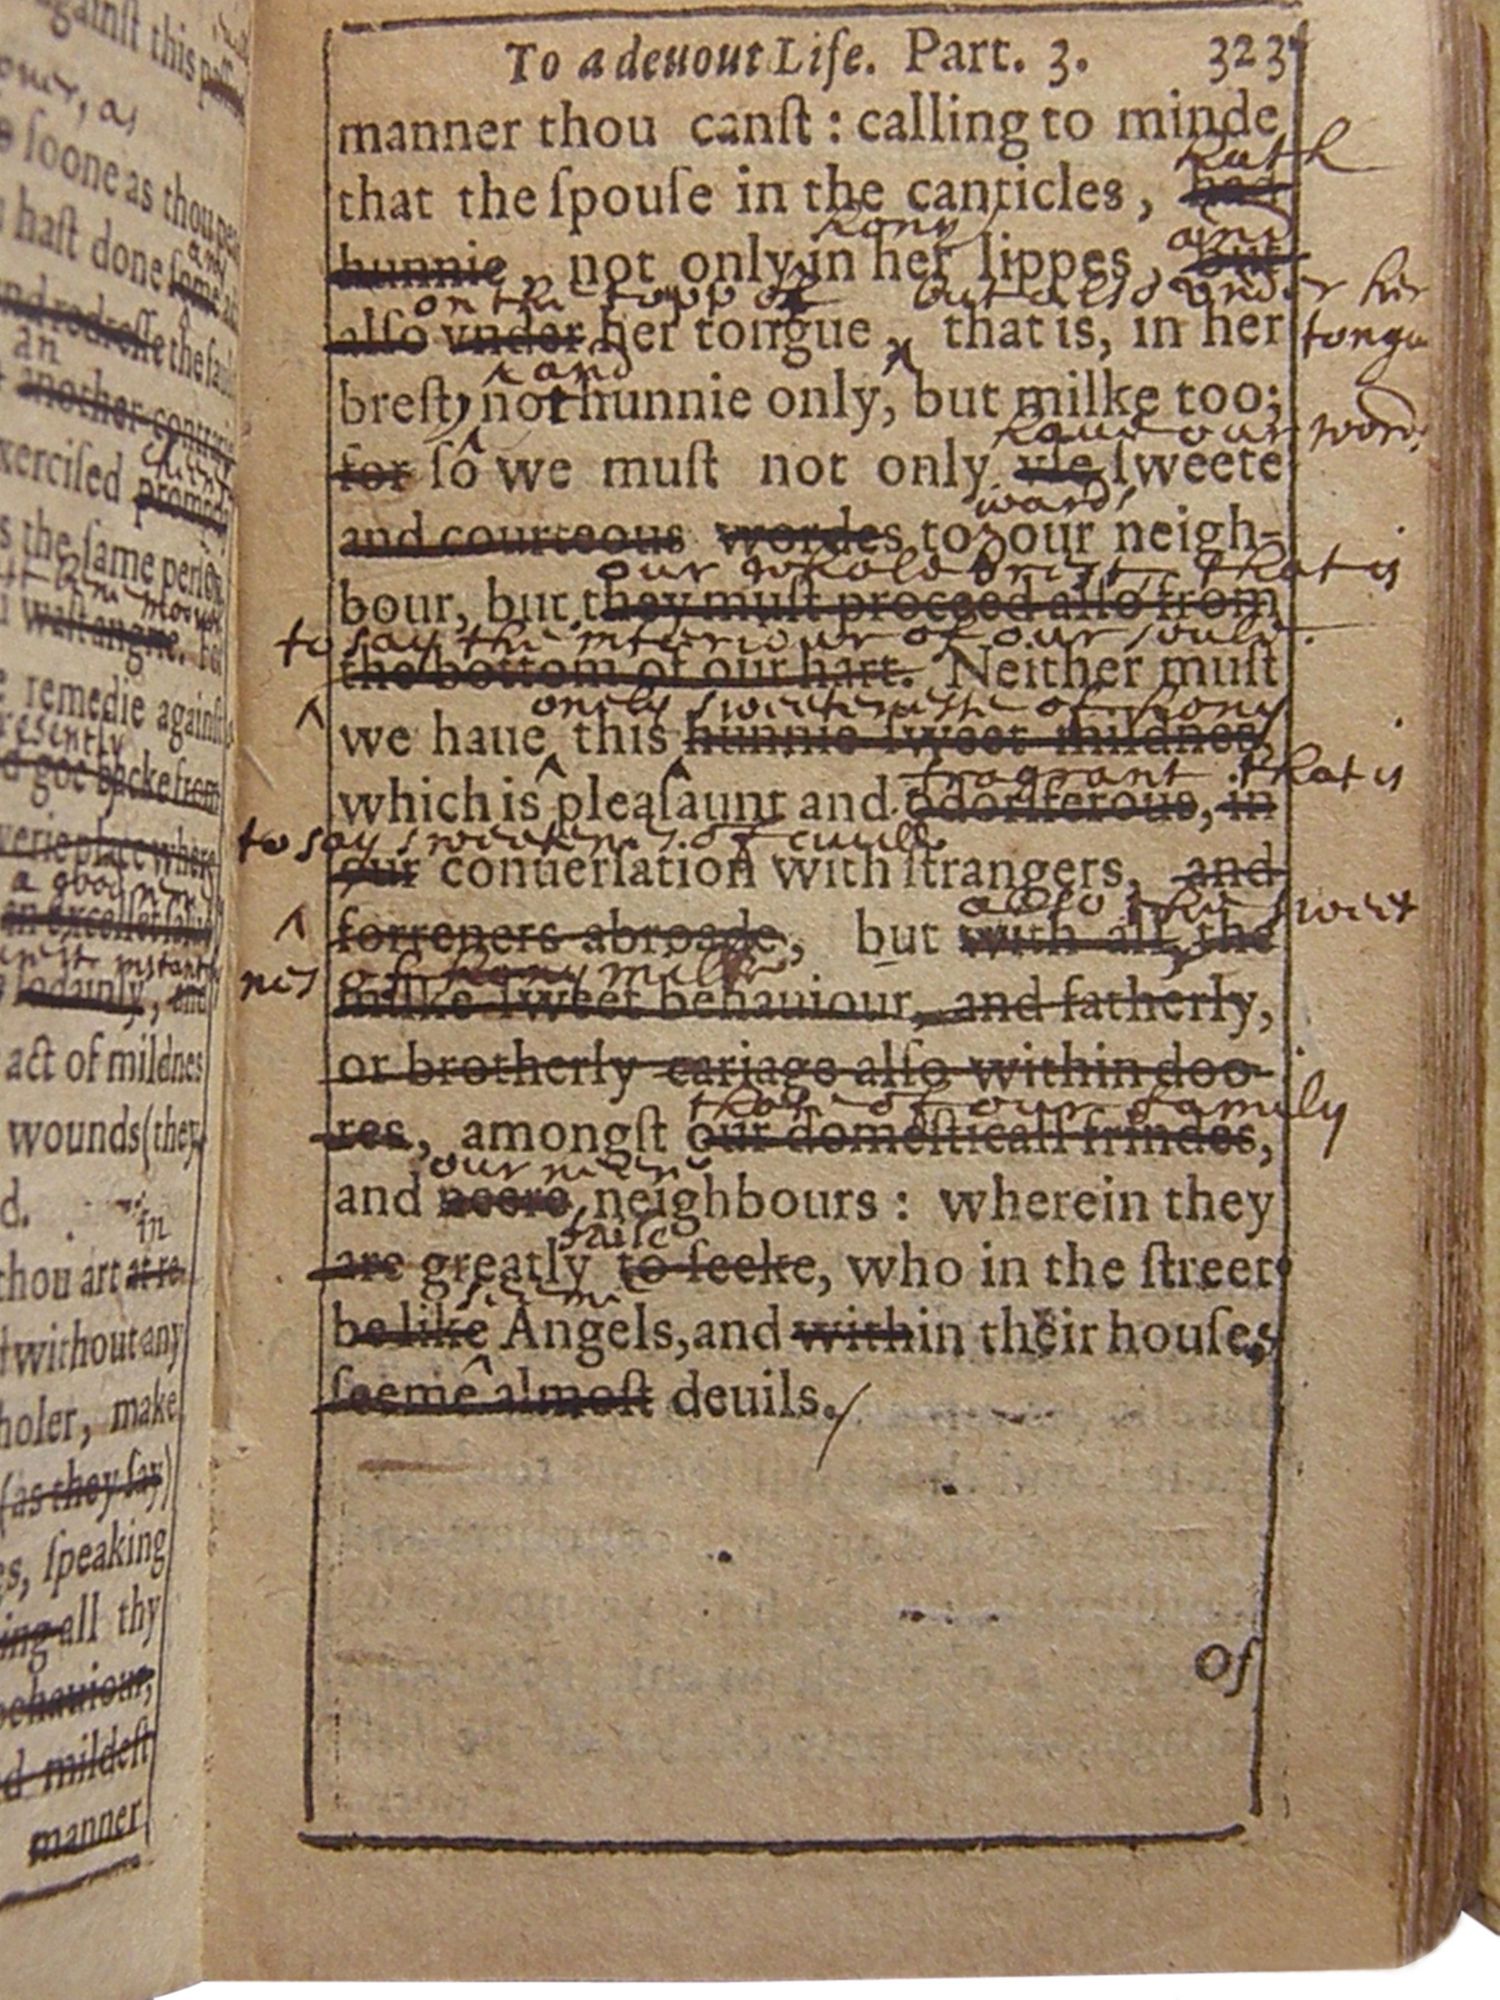 againſt this
ower, as
ſoone as thou
haſt done ſome
and
and redreſſe the
an
another contrarie
exerciſed
the ſame
waſt angrie. but
remedie againſt
preſently
goe backe from
verie place where
a good
an excellet
instantly
ſodainly, and
act of mildnes
wounds (they
d.
in
thou art at re
without any
choler, make
(as they ſay)
ſpeaking
ing all thy
behauiour,
mildeſt
manner
To a deuout Life. Part. 3. 323
manner thou canſt : calling to minde
hath
that the ſpouſe in the canticles, had
hony and
hunnie, not only in her lippes, but
on the topp of but also vnder her
alſo vnder her tongue, that is, in her tongue
and
breſt, not hunnie only, but milke too;
haue our word
for ſo we muſt not only vſe ſweete
wards
and courteous wordes to our neigh-
our whole brest, that is
bour, but they muſt proceed alſo from
to say the interiour of our soule.
the bottom of our hart. Neither muſt
onely sweetenesse of hony
we haue this hunnie ſweet mildnes,
fragrant that is
which is pleaſaunt and odoriferous, in
to say sweetenes of ciuill
our conuerſation with ſtrangers, and
also the sweet
forreners abroade, but with all the
nes of hony milke
milke ſweet behauiour, and fatherly,
or brotherly cariage alſo within doo-
those of our family
res, amongſt our domeſticall frindes,
our neere
and neere neighbours : wherein they
faile
are greatly to ſeeke, who in the ſtreet
seeme
be like Angels, and within their houſes
ſeeme almoſt deuils.
Of